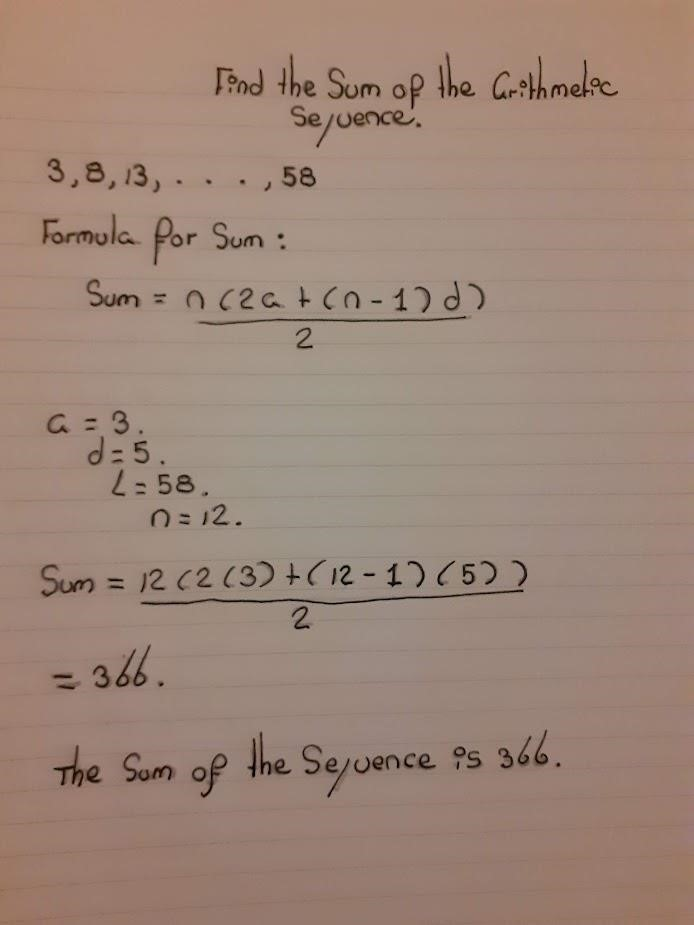 Find the Sum of the Arithmetic
Sequence.
3, 8, 13, . . . ., 58
Formula for Sum :
Sum = n (2a + (n - 1) d)
2
a = 3.
d = 5.
L = 58.
n = 12.
Sum = 12 (2 (3) + (12 - 1) (5))
2
= 366.
The Sum of the Sequence is 366.